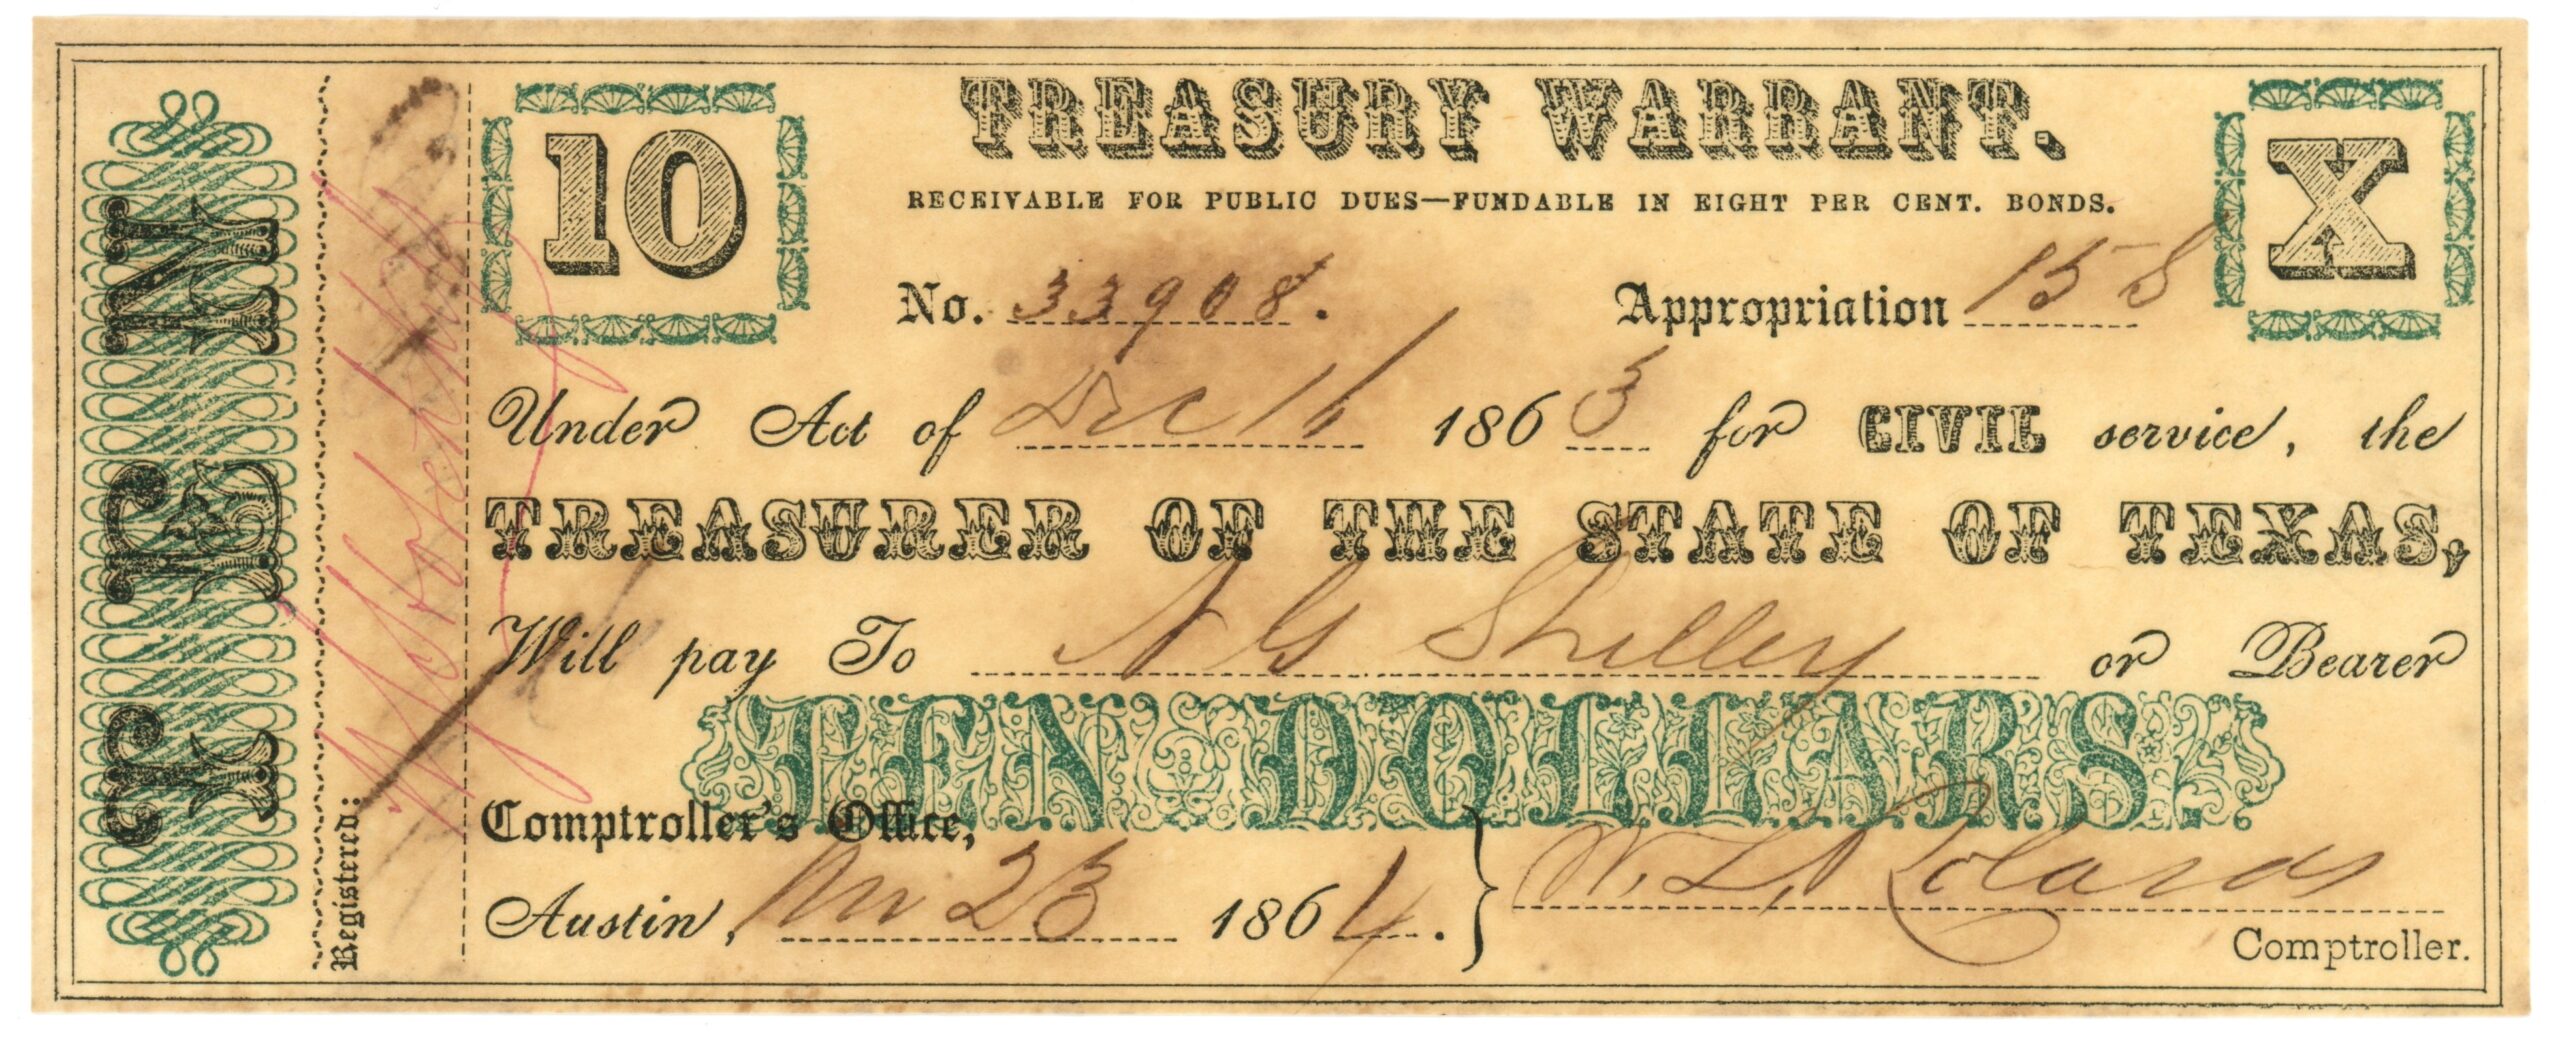 TEN
Registered:
10
TREASURY WARRANT.
X
RECEIVABLE FOR PUBLIC DUES—FUNDABLE IN EIGHT PER CENT. BONDS.
No. 33908. Appropriation 158
Under Act of Dec 16 1863 for CIVIL service, the
TREASURER OF THE STATE OF TEXAS,
Will pay To N G Shelley or Bearer
TEN DOLLARS
Comptroller's Office,
Austin, 23 1864.
Comptroller.